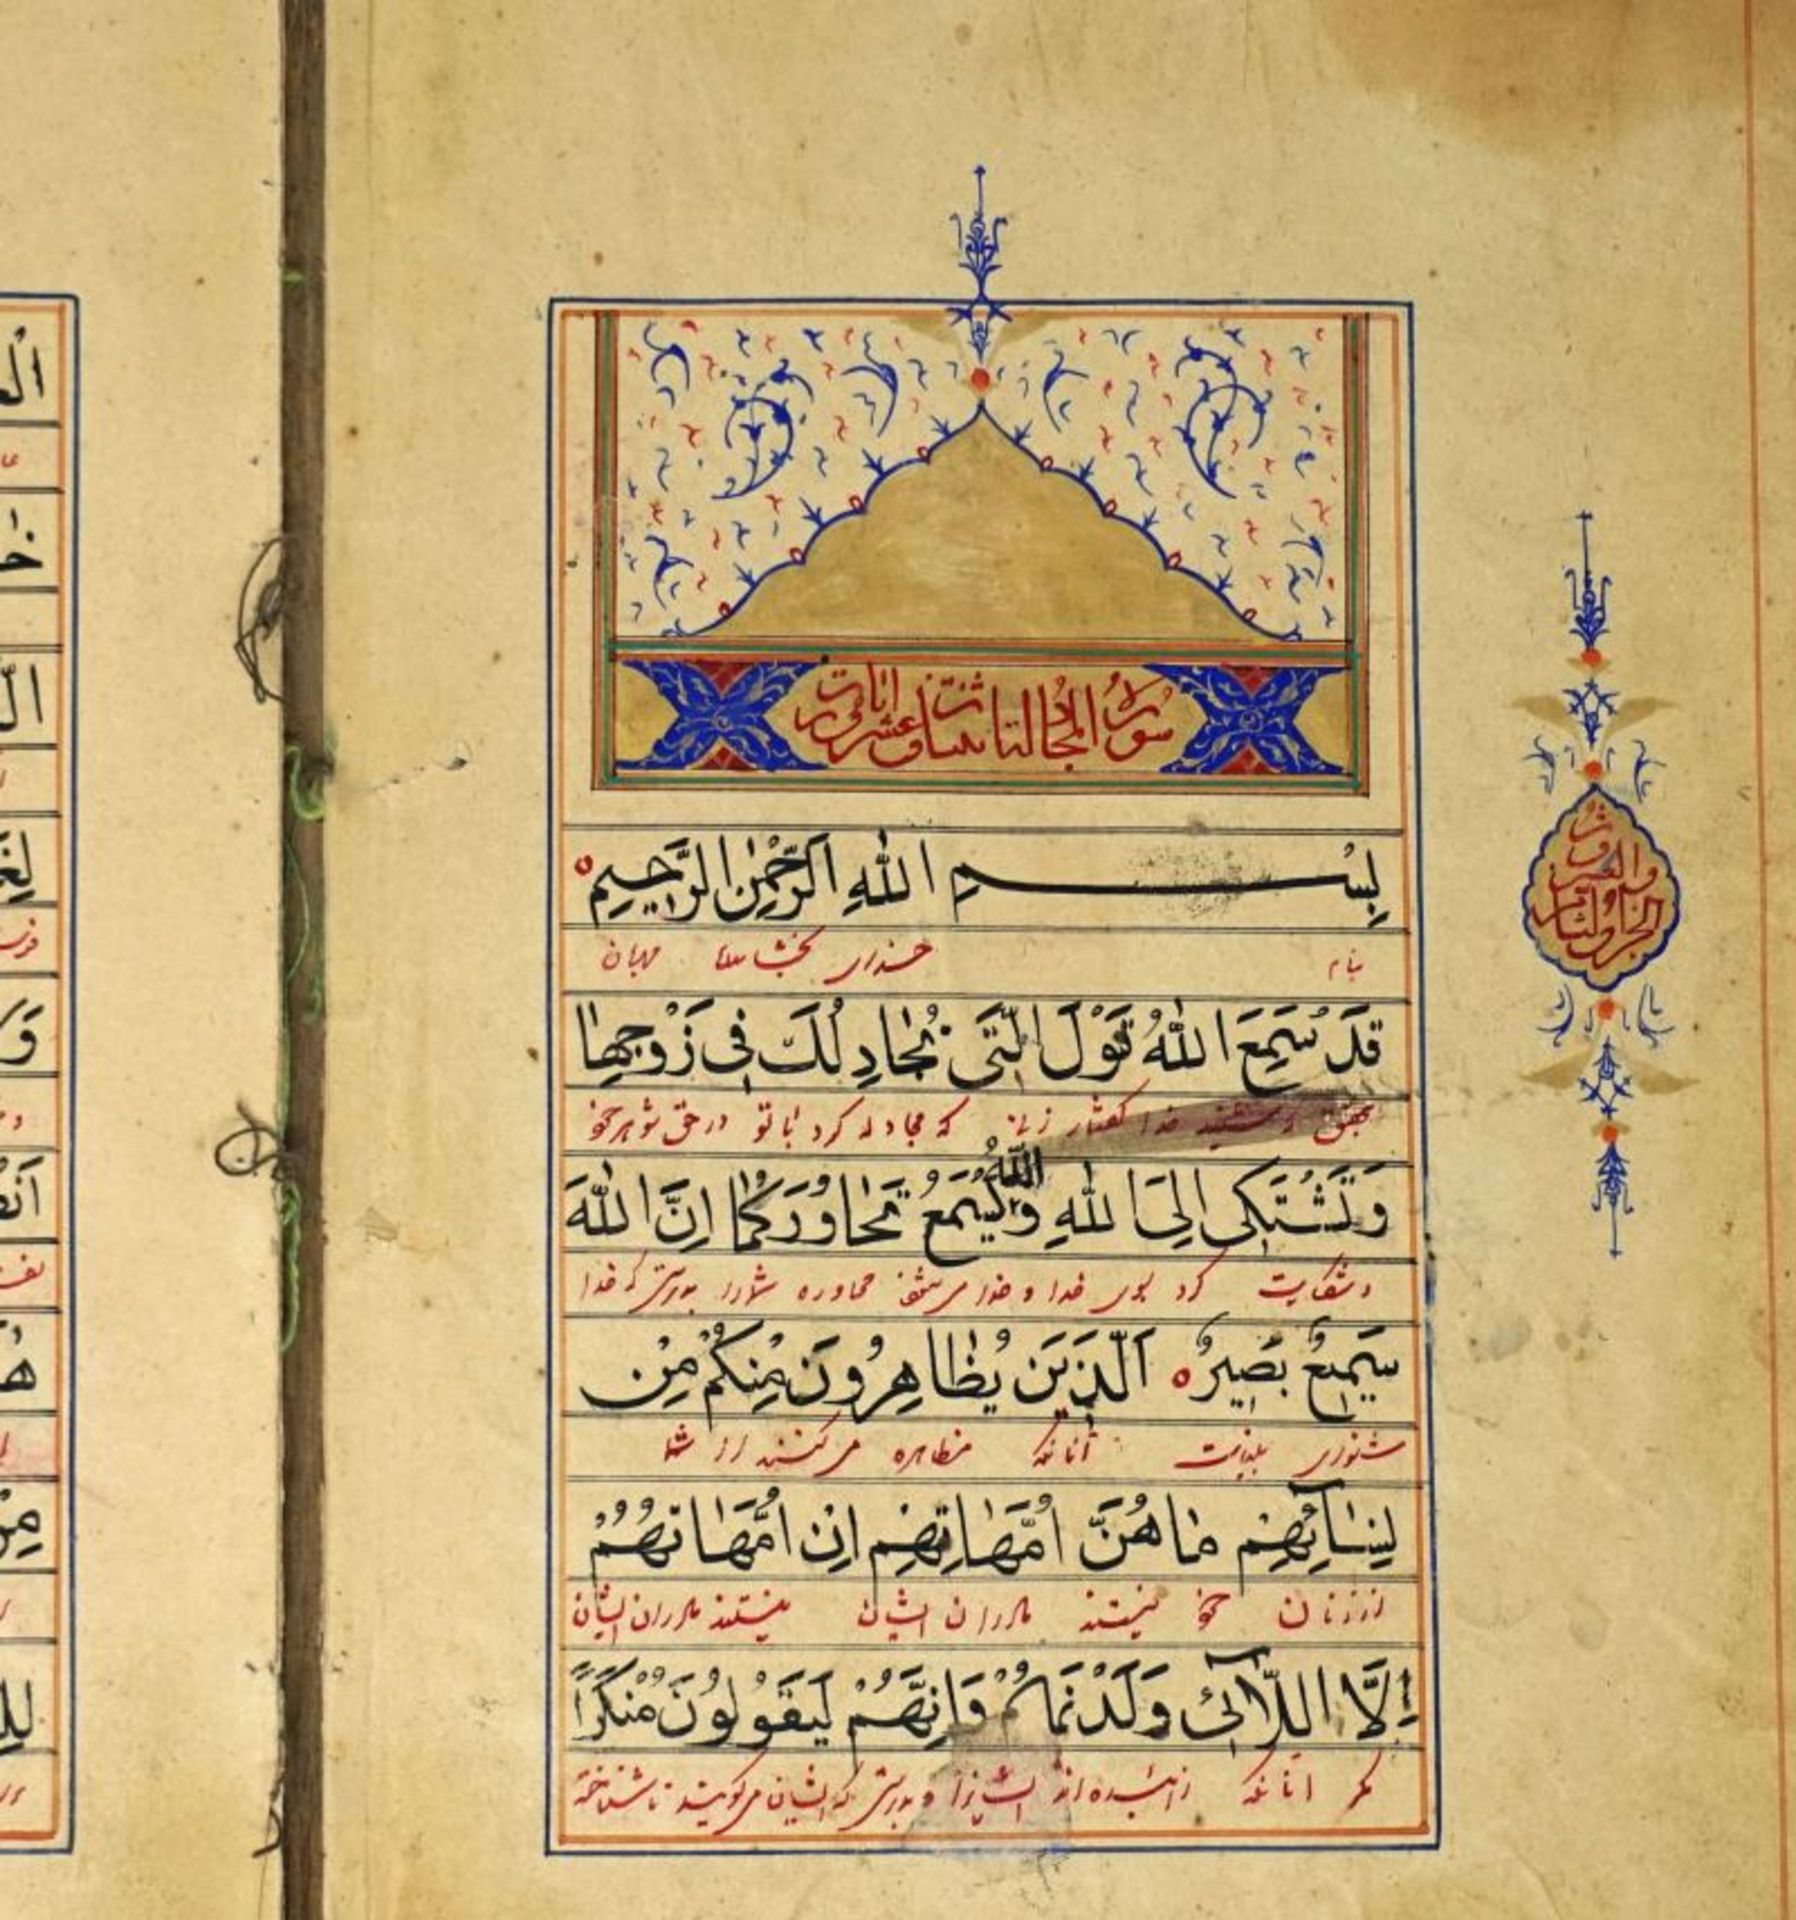 سورة المجادلة اثنتان و عشر ايات
بِسْمِ اللّٰهِ الرَّحْمٰنِ الرَّحيمِ
بنام خداى بخشاينده مهربان
قَدْ سَمِعَ اللّٰهُ قَوْلَ الَّتى تُجٰادِلُكَ فى زَوْجِهٰا
خدا گفتار زنى كه مجادله كرد با تو در حق شوهر خود
وَتَشْتَكى اِلَى اللّٰهِ وَاللّٰهُ يَسْمَعُ تَحٰاوُرَكُمٰا اِنَّ اللّٰهَ
و شكايت كرد بسوى خدا و خدا مى شنود محاوره شما را بدرستى كه خدا
سَميعٌ بَصيرٌ اَلَّذينَ يُظٰاهِرُونَ مِنْكُمْ مِنْ
شنواى بيناست آنانكه مظاهره مى كنند از شما
نِسٰآئِهِمْ مٰا هُنَّ اُمَّهٰاتِهِمْ اِنْ اُمَّهٰاتُهُمْ
از زنان خود نيستند مادران ايشان نيستند مادران ايشان
اِلَّا اللّٰآئى وَلَدْنَهُمْ وَاِنَّهُمْ لَيَقُولُونَ مُنْكَرًا
مگر آنانكه زائيده اند ايشانرا و بدرستى كه ايشان مى گويند ناشناخته
الجزو الثامن والعشرون